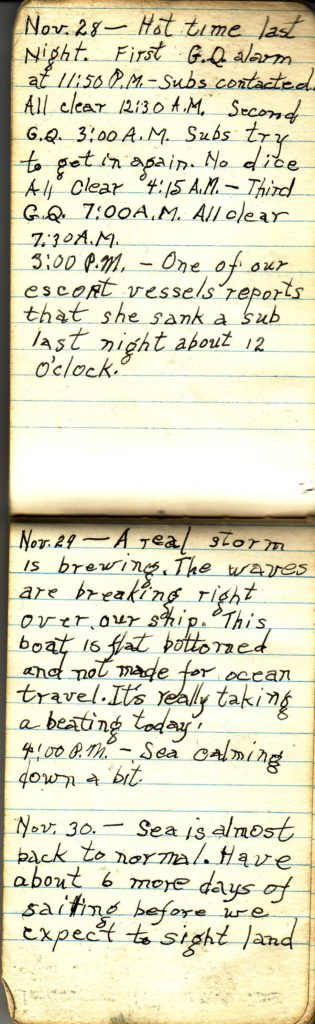 Nov. 28 — Hot time last
Night. First G.Q. alarm
at 11:50 P.M. - Subs contacted.
All clear 12:30 A.M. Second
G.Q. 3:00 A.M. Subs try
to get in again. No dice
All Clear 4:15 A.M. - Third
G.Q. 7:00 A.M. All clear
7:30 A.M.
3:00 P.M. - One of our
escort vessels reports
that she sank a sub
last night about 12
O'clock.
Nov. 29 — A real storm
is brewing. The waves
are breaking right
over our ship. This
boat is flat bottomed
and not made for ocean
travel. It's really taking
a beating today!
4:00 P.M. - Sea calming
down a bit.
Nov. 30. — Sea is almost
back to normal. Have
about 6 more days of
sailing before we
expect to sight land